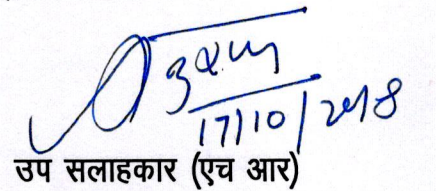 17/10/2018
उप सलाहकार (एच आर)